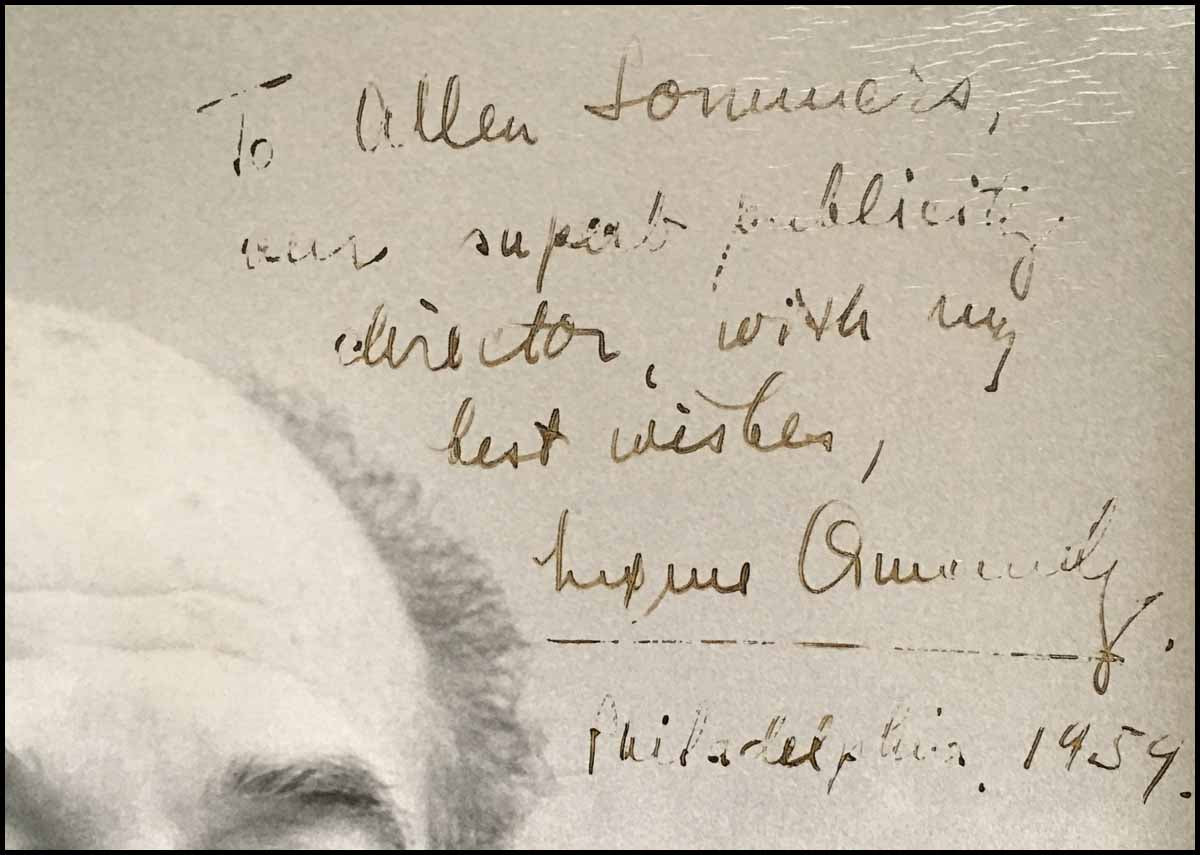 To Allen Sommers,
our superb publicity
director, with my
best wishes,
Eugene Ormandy.
Philadelphia. 1959.